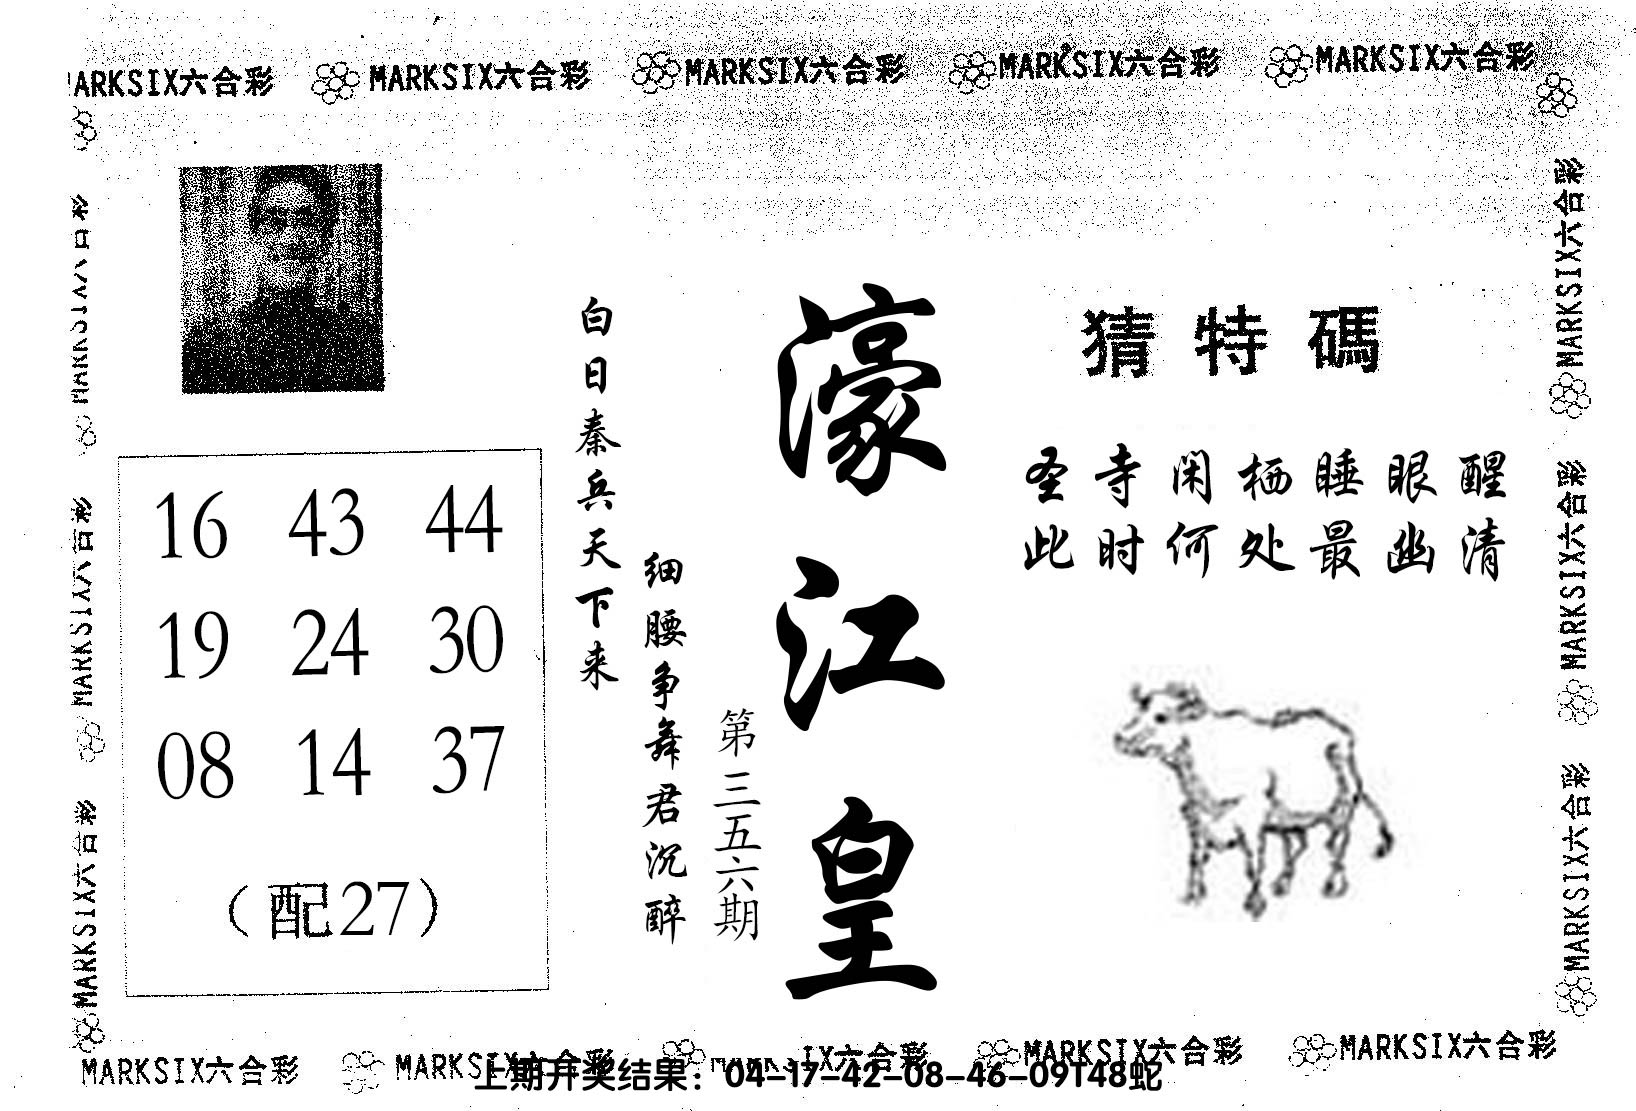 MARKSIX六合彩 MARKSIX六合彩 MARKSIX六合彩 MARKSIX六合彩 MARKSIX六合彩
猜特碼
圣寺闲栖睡眼醒
此时何处最幽清
濠江皇
第三五六期
白日秦兵天下来
细腰争舞君沉醉
16 43 44
19 24 30
08 14 37
（配27）
MARKSIX六合彩
MARKSIX六合彩
MARKSIX六合彩
MARKSIX六合彩
MARKSIX六合彩
MARKSIX六合彩
MARKSIX六合彩 MARKSIX六合彩 MARKSIX六合彩 MARKSIX六合彩 MARKSIX六合彩
上期开奖结果：04-17-42-08-46-09T48蛇